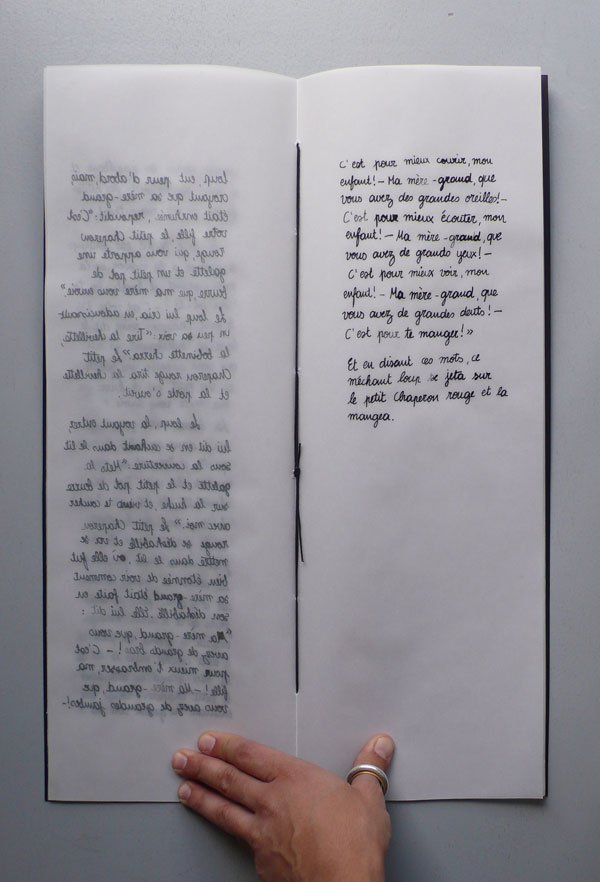 loup, eut peur d'abord, mais,
croyant que sa mère-grand
était enrhumée, répondit: "C'est
votre fille, le petit Chaperon
rouge qui vous apporte une
galette et un petit pot de
beurre que ma mère vous envoie."
Le loup lui cria, en adoucissant
un peu sa voix: "Tire la chevillette,
la bobinette cherra." Le petit
Chaperon rouge tira la chevillette
et la porte s'ouvrit.
Le loup, la voyant entrer,
lui dit en se cachant dans le lit
sous la couverture: "Mets la
galette et le petit pot de beurre
sur la huche, et viens te coucher
avec moi." Le petit Chaperon
rouge se déshabille et va se
mettre dans le lit, où elle fut
bien étonnée de voir comment
sa mère-grand était faite en
son déshabillé. Elle lui dit :
"Ma mère-grand, que vous
avez de grands bras! – C'est
pour mieux t'embrasser, ma
fille! – Ma mère-grand, que
vous avez de grandes jambes! –
C'est pour mieux courir, mon
enfant! – Ma mère-grand, que
vous avez des grandes oreilles! –
C'est pour mieux écouter, mon
enfant! – Ma mère-grand, que
vous avez de grands yeux! –
C'est pour mieux voir, mon
enfant! – Ma mère-grand, que
vous avez de grandes dents! –
C'est pour te manger! »
Et en disant ces mots, ce
méchant loup se jeta sur
le petit Chaperon rouge et la
mangea.